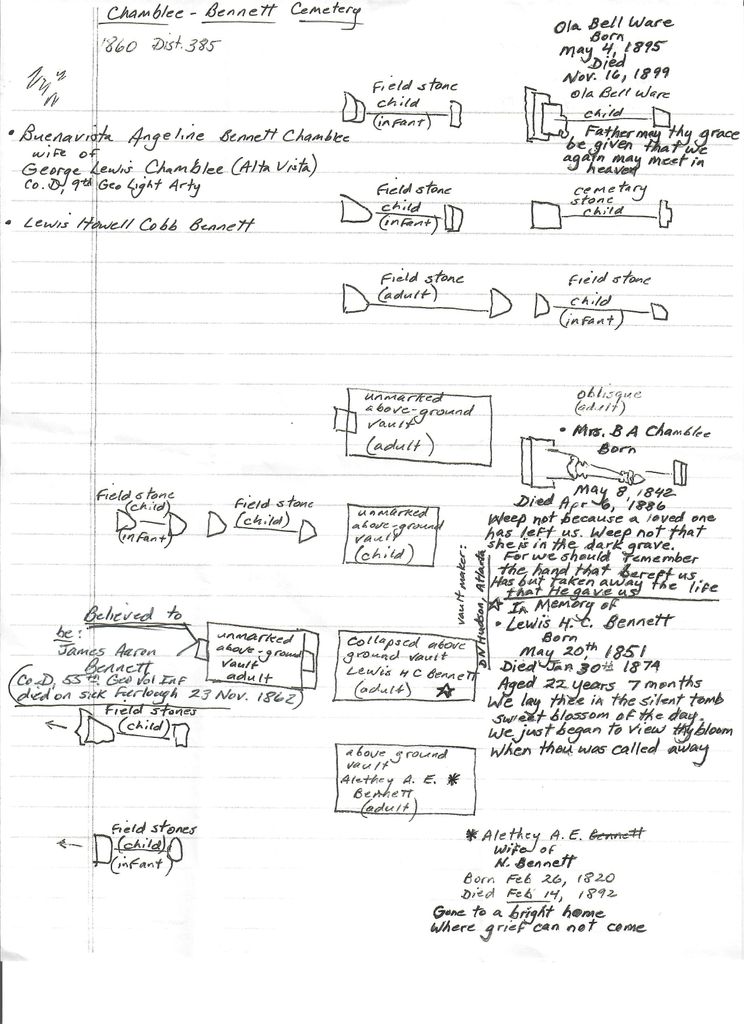 Chamblee - Bennett Cemetery
1860 Dist. 385
Ola Bell Ware
Born
May 4, 1895
Died
Nov. 16, 1899
Ola Bell Ware
child
Father may thy grace
be given that we
again may meet in
heaven
Field stone
child
(infant)
• Buenavista Angeline Bennett Chamblee
wife of
George Lewis Chamblee (Alta Vista)
Co. D, 9th Geo Light Arty
• Lewis Howell Cobb Bennett
Field stone
child
(infant)
cemetary
stone
child
Field stone
(adult)
Field stone
child
(infant)
unmarked
above-ground
vault
(adult)
oblisque
(adult)
• Mrs. B A Chamblee
Born
May 8, 1842
Died Apr 6, 1886
Weep not because a loved one
has left us. Weep not that
she is in the dark grave.
For we should remember
the hand that bereft us
Has but taken away the life
that He gave us
Field stone
(child)
(infant)
Field stone
(child)
unmarked
above-ground
vault
(child)
vault maker:
D N Hudson, Atlanta
☆ In Memory of
• Lewis H. C. Bennett
Born
May 20th 1851
Died Jan 30th 1874
Aged 22 years 7 months
We lay thee in the silent tomb
sweet blossom of the day.
We just began to view thy bloom
When thou was called away
Believed to
be:
James Aaron
Bennett
(Co. D, 55th Geo Vol Inf
died on sick Furlough 23 Nov. 1862)
unmarked
above-ground
vault
adult
Collapsed above
ground vault
Lewis H C Bennett
(adult) ☆
Field stones
(child)
above ground
vault
Alethey A. E. *
Bennett
(adult)
Field stones
(child)
(infant)
* Alethey A. E. Bennett
Wife of
N. Bennett
Born Feb 26, 1820
Died Feb 14, 1892
Gone to a bright home
Where grief can not come